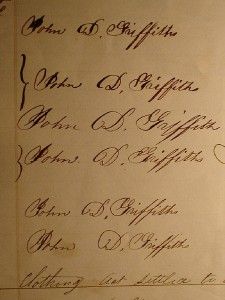 John D. Griffiths
John D. Griffith
John D. Griffith
John D. Griffith
John D. Griffiths
John D. Griffith
Clothing act settled to